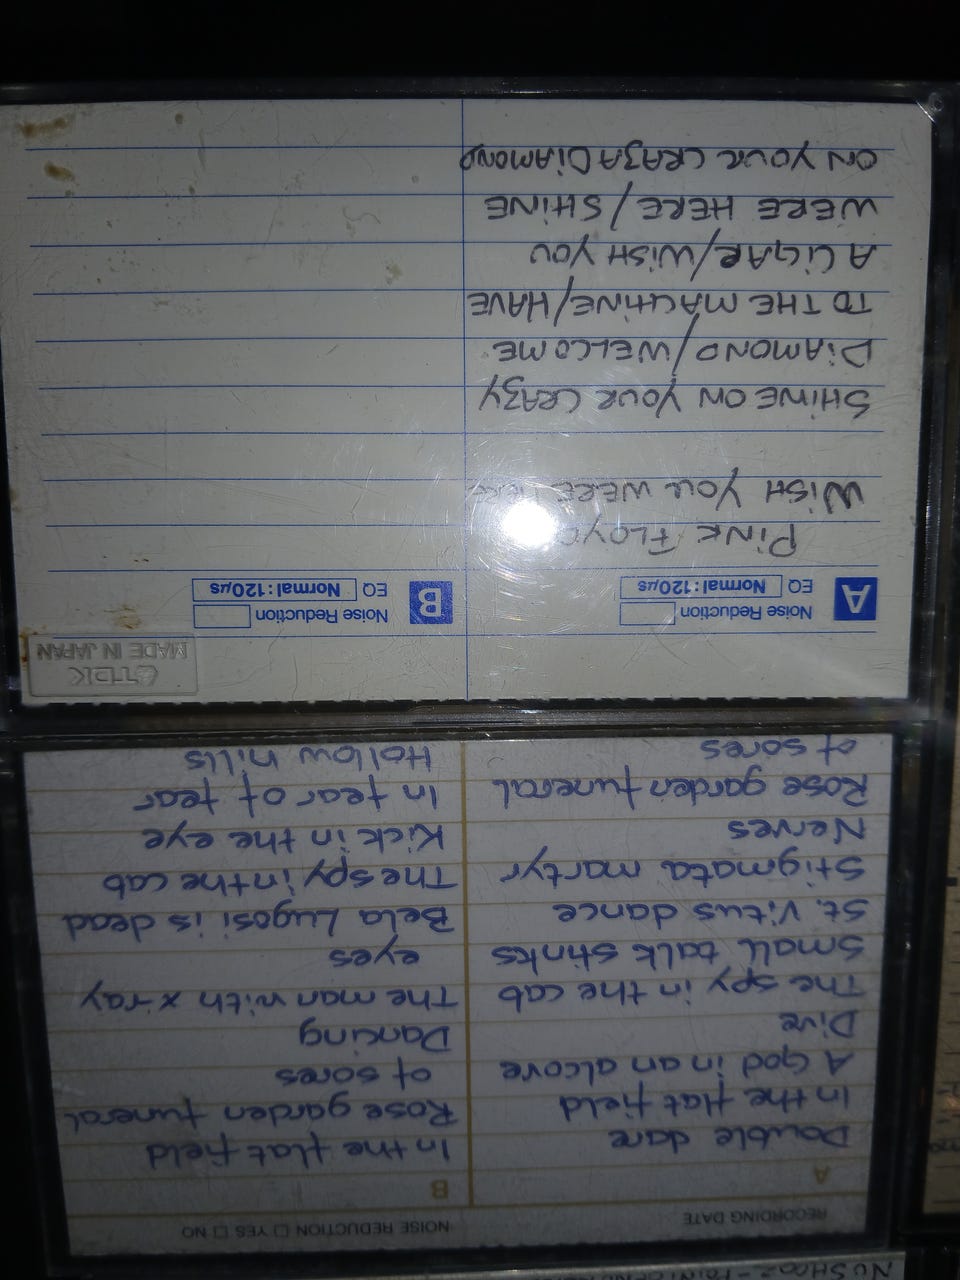 NU SHOOZ - POINT
RECORDING DATE
NOISE REDUCTION □ YES □ NO
A
Double dare
In the flat field
A God in an alcove
Dive
The spy in the cab
Small talk stinks
St. Vitus dance
Stigmata martyr
Nerves
Rose garden funeral
of sores
B
In the flat field
Rose garden funeral
of sores
Dancing
The man with x-ray
eyes
Bela Lugosi is dead
The spy in the cab
Kick in the eye
In fear of fear
Hollow hills
TDK
MADE IN JAPAN
A
Noise Reduction
EQ Normal:120µs
PINK FLOYD
WISH YOU WERE HERE
SHINE ON YOUR CRAZY
DIAMOND/WELCOME
TO THE MACHINE/HAVE
A CIGAR/WISH YOU
WERE HERE/SHINE
ON YOUR CRAZY DIAMOND
B
Noise Reduction
EQ Normal:120µs